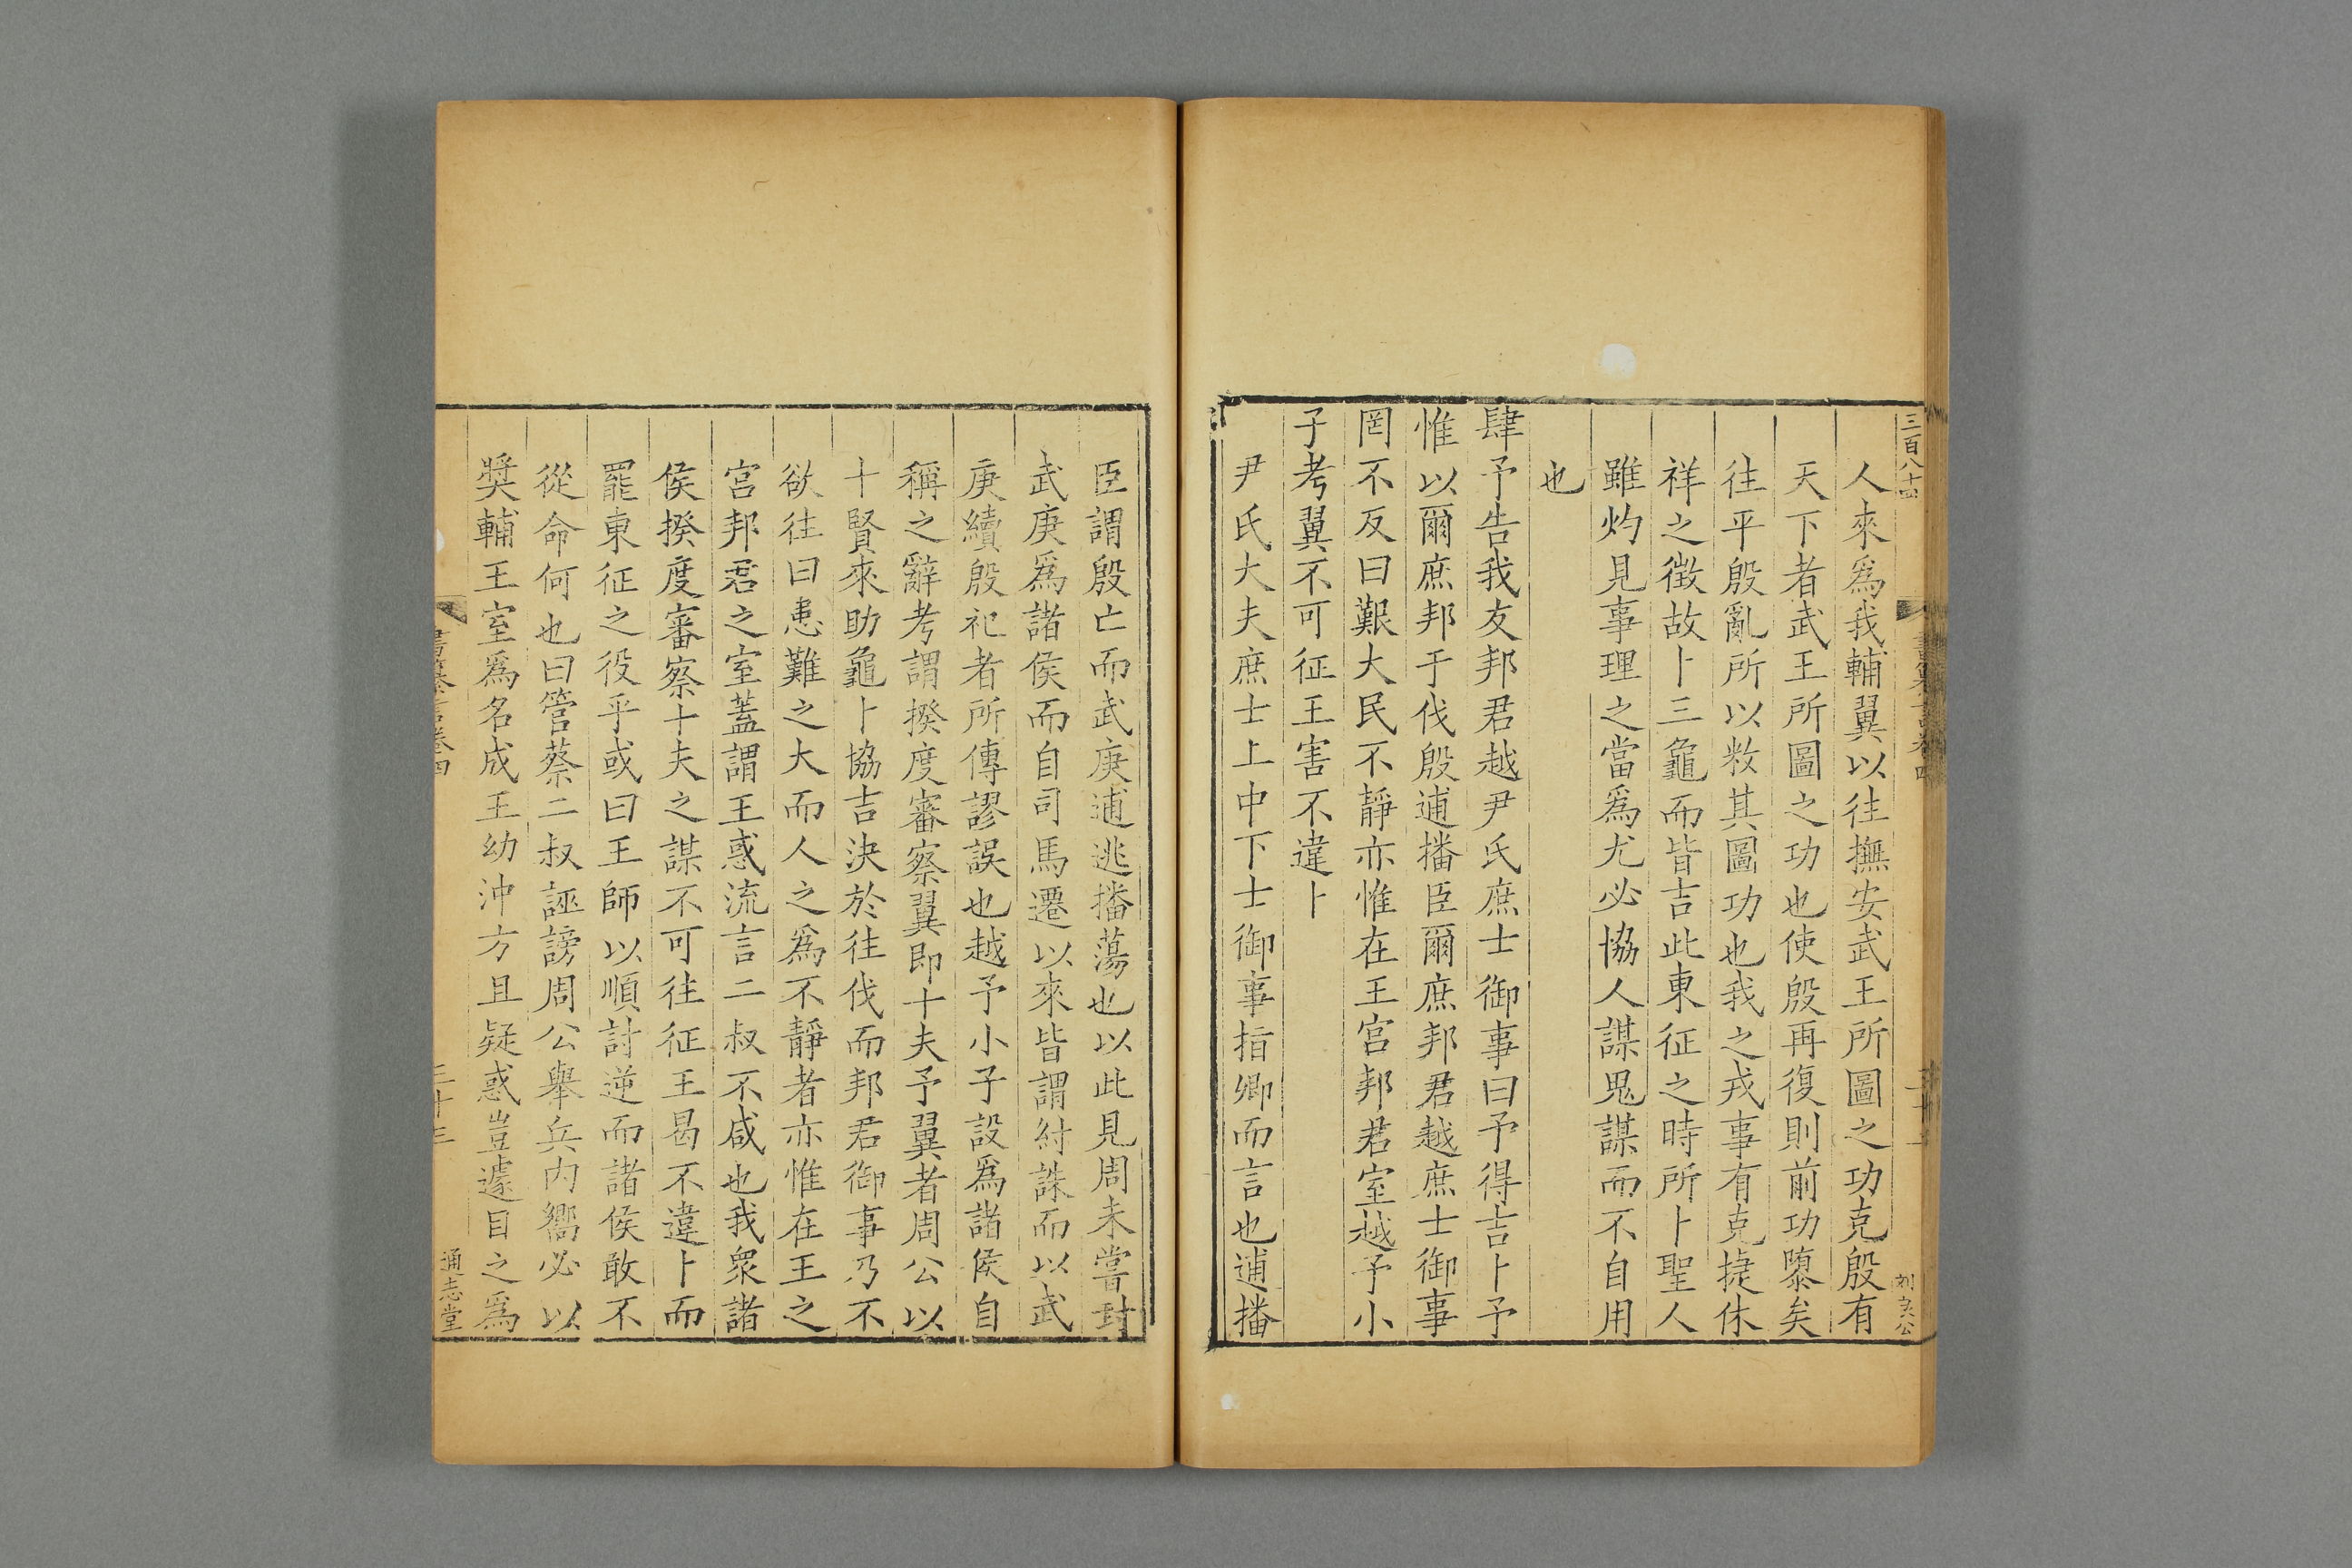 三百八十四
人來爲我輔翼以往撫安武王所圖之功克殷有
天下者武王所圖之功也使殷再復則前功隳矣
往平殷亂所以敉其圖功也我之戎事有克捷休
祥之徵故卜三龜而皆吉此東征之時所卜聖人
雖灼見事理之當爲尤必協人謀鬼謀而不自用
也
肆予告我友邦君越尹氏庶士御事曰予得吉卜予
惟以爾庶邦于伐殷逋播臣爾庶邦君越庶士御事
罔不反曰艱大民不靜亦惟在王宫邦君室越予小
子考翼不可征王害不違卜
尹氏大夫庶士上中下士御事指卿而言也逋播
臣謂殷亡而武庚逋逃播蕩也以此見周未嘗封
武庚爲諸侯而自司馬遷以來皆謂紂誅而以武
庚續殷祀者所傳謬誤也越予小子設爲諸侯自
稱之辭考謂揆度審察翼即十夫予翼者周公以
十賢來助龜卜協吉決於往伐而邦君御事乃不
欲往曰患難之大而人之爲不靜者亦惟在王之
宫邦君之室蓋謂王惑流言二叔不咸也我衆諸
侯揆度審察十夫之謀不可往征王曷不違卜而
罷東征之役乎或曰王師以順討逆而諸侯敢不
從命何也曰管蔡二叔誣謗周公舉兵内嚮必以
奬輔王室爲名成王幼沖方且疑惑豈遽目之爲
書纂言卷四
三十三
通志堂